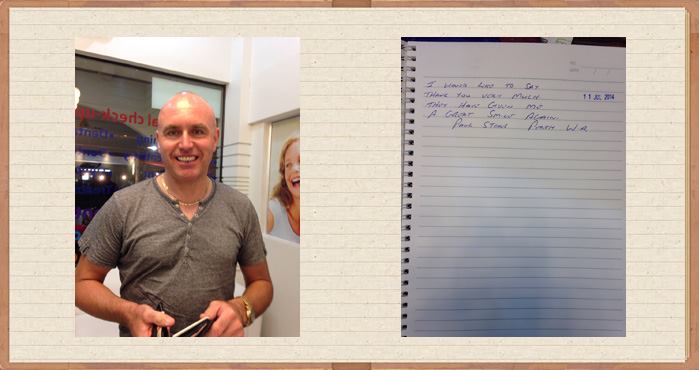 al check up
I WOULD LIKE TO SAY
THANK YOU VERY MUCH
11 JUL 2014
THEY HAVE GIVEN ME
A GREAT SMILE AGAIN.
PAUL PERTH W.A